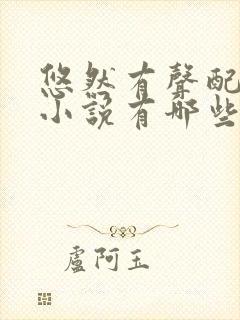 悠然有聲配
小說有哪些
盧阿玉